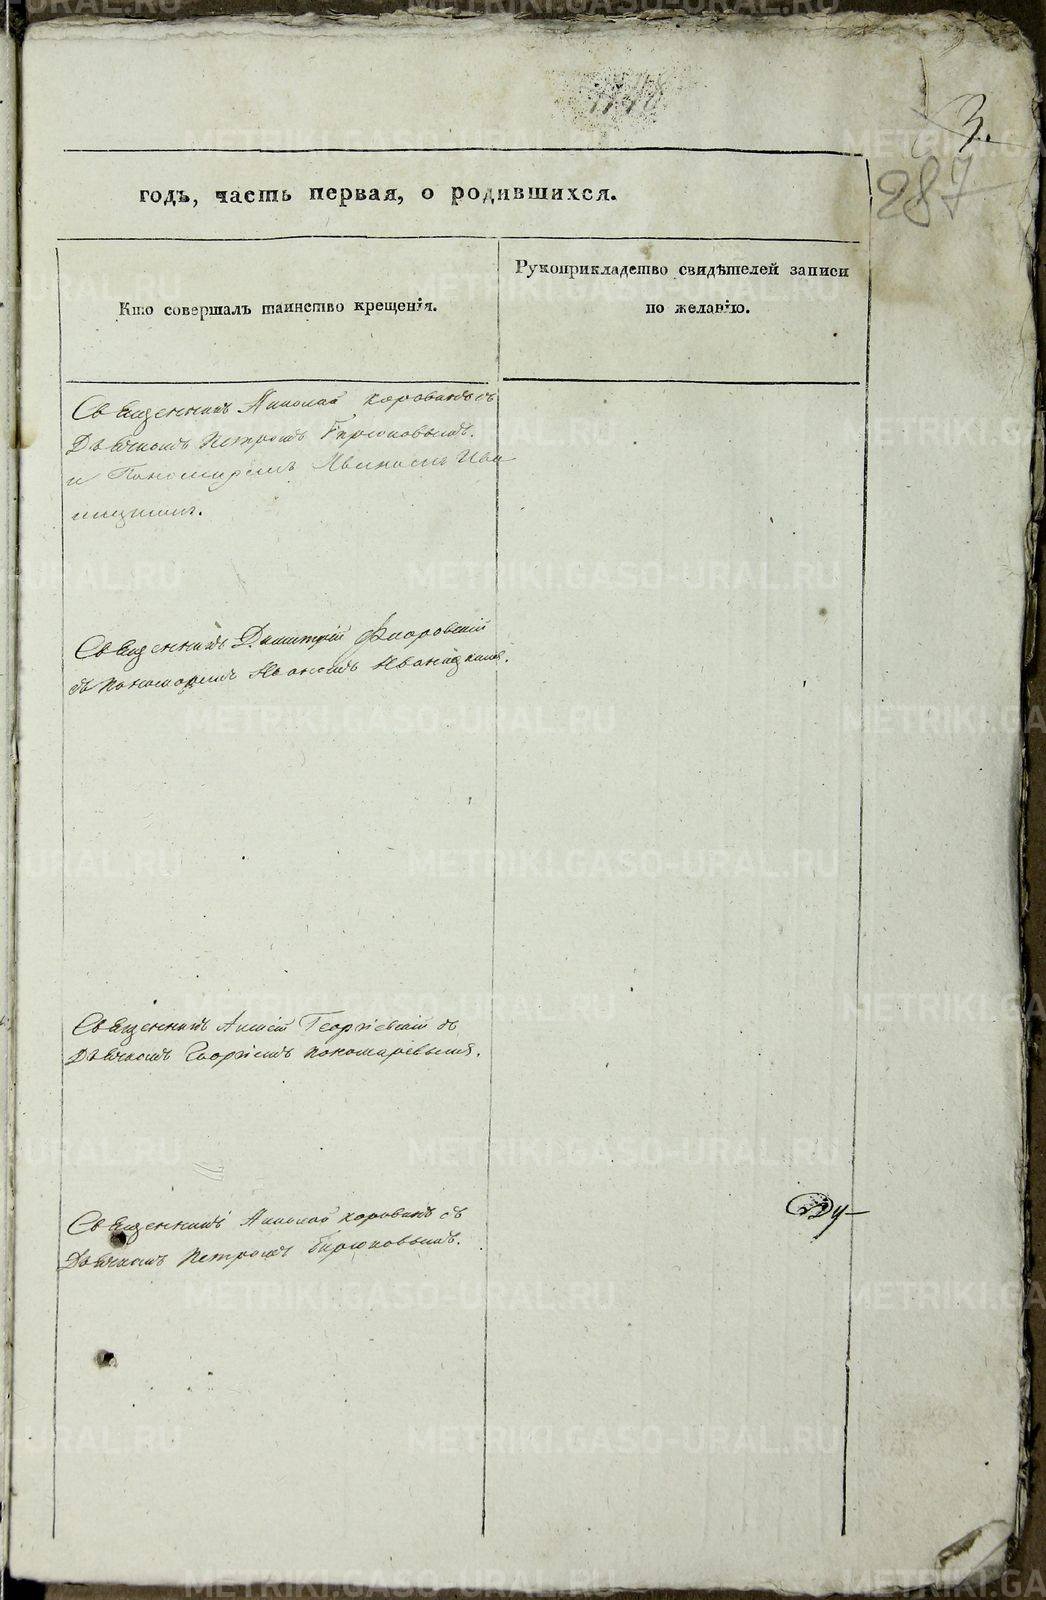 3.
287
годъ, часть первая, о родившихся.
Кто совершалъ таинство крещенія.
Рукоприкладство свидѣтелей записи
по желанію.
Священникъ Николай Коровинъ съ
Дьячкомъ Петромъ Бирюковымъ.
и Пономаремъ Иваномъ Ива
ницкимъ.
Священникъ Димитрій Флоровскій
съ Пономаремъ Иваномъ Иваницкимъ.
Священникъ Алексій Георгіевскій съ
Дьячкомъ Георгіемъ Пономаревымъ.
Священникъ Николай Коровинъ съ
Дьячкомъ Петромъ Бирюковымъ.
METRIKI.GASO-URAL.RU